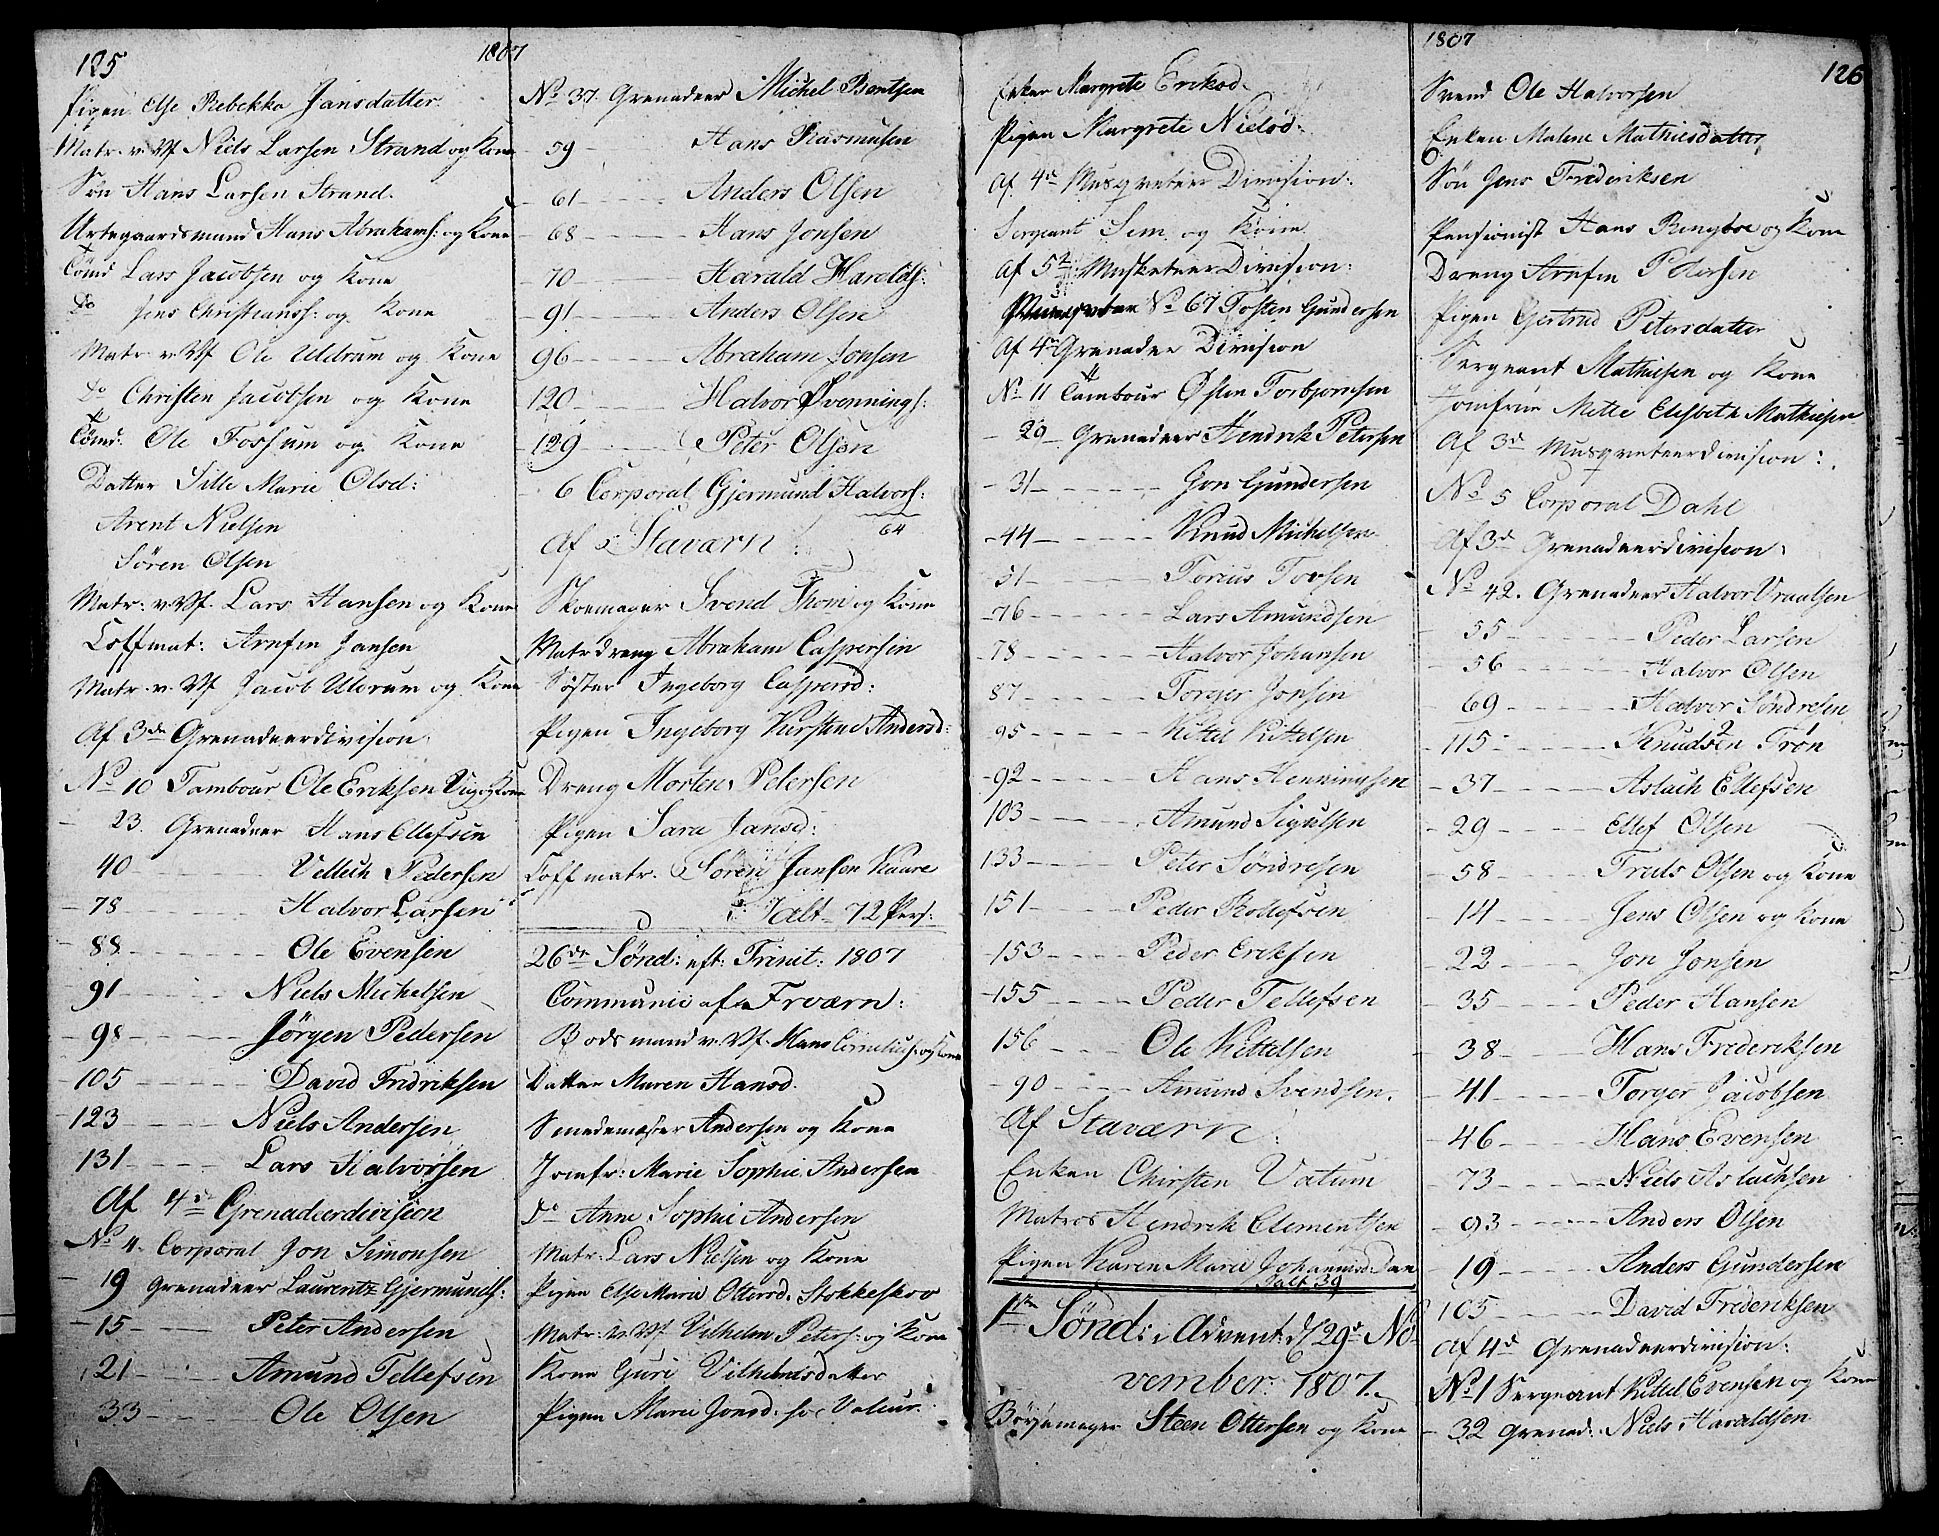 125
1807
Pigen Else Rebekka Jansdatter
Matr. v. Vf. Niels Larsen Strand og Kone
Søn Hans Larsen Strand.
Urtegaardsmand Hans Abrahams: og Kone
Tømd Lars Jacobsen og Kone
Do Jens Christianss: og Kone
Matr. v. Vf Ole Uldrum og Kone
Do Christen Jacobsen og Kone
Tømd: Ole Fossum og Kone
Datter Sille Marie Olsd:
Arent Nielsen
Søren Olsen
Matr: v. Vf. Lars Hansen og Kone
Coffmat: Arnfin Jansen
Matr. v. Vf Jacob Uldrum og Kone
Af 3de Grenadeerdivision
No 10 Tambour Ole Eriksen Vig og Kone
- 23. Grenadeer Hans Ellefsen
40 Pedersen
- 78 Halvor Larsen
- 88 Ole Evensen
91 Niels Michelsen
- 98 Jørgen Pedersen
- 105 David Fridriksen
- 123 Niels Andersen
131 Lars Halvorsen
Af 4de Grenadeerdivision
No 4. Corporal Jon Simonsen
- 19 Grenadeer Laurentz Gjermunds:
- 15 Peter Andersen
21 Amund Tellefsen
33 Ole Olsen
No 37. Grenadeer Michel Bentsen
- 59 Hans Rasmusen
- 61 Anders Olsen
- 68 Hans Jonsen
- 70 Harald Harolds:
- 91 Anders Olsen
96 Abraham Jonsen
120 Halvor Svennings:
- 129 Peter Olsen
- 6 Corporal Gjermund Halvors:
64
Af Staværn
Skoemager Svend Thom og Kone
Matrdreng Abraham Caspersen
Søster Ingeborg Caspersd:
Pigen Ingeborg Kirstine Andersd:
Dreng Morten Petersen
Pigen Sara Jansd:
Coffmatr. Søren Janson Kaare
Ialt 72 Pers:
26de Sønd: eft: Trinit: 1807
Communic af Frværn:
Bodsmand v. Vf. Hans Cornelius: og Kone
Datter Maren Hansd.
Smedemester Andersen og Kone
Jomfr: Marie Sophie Andersen
Do Anne Sophie Andersen
Matr: Lars Nielsen og Kone
Pigen Else Marie Ottersd. Stokkeskov
Matr: v. Vf. Vilhelm Peters: og Kone
Kone Guri Vilhelmsdatter
Pigen Marie Jonsd. hos Valeur.
1807
126
Enken Margrete Eriksd.
Pigen Margrete Nielsd:
Af 4de Musqveteer Division:
Sergeant Sem og Kone
Af 5te Musketeer Division:
Musqveteer No 67 Tosten Gundersen
Af 4de Grenadeer Division
No 11 Tambour Østen Torbjornsen
- 29 Grenadeer Hendrik Petersen
- 31 Jon Gundersen
- 44 Knud Michelsen
51 Torius Tovsen
- 76 Lars Amundsen
- 78 Halvor Johansen
87 Torger Jonsen
95 Kittel Kittelsen
- 92 Hans Henningsen
103 Amund Sigulsen
133 Peter Søndresen
151 Peder Rollefsen
- 153 Peder Eriksen
- 155 Peder Tellefsen
156 Ole Kittelsen
- 90 Amund Svendsen.
Af Staværn:
Enken Chirsten Vatum
Matros Hendrik Clementsen
Pigen Karen Marie Johannesd:
Ialt 39
1te Sønd: i Advent d 29de No
vember 1807.
Bøssemager Steen Ottersen og Kone
Svend Ole Halvorsen
Enken Malene Mathiesdatter
Søn Jens Frederiksen
Pensionist Hans Ringboe og Kone
Dreng Arnfin Petersen
Pigen Gertrud Petersdatter
Sergeant Mathiesen og Kone
Jomfrue Mette Elisbeth Mathiesen
Af 3de Musqveteerdivision:
No 5 Corporal Dahl
Af 3de Grenadeerdivision:
No 42. Grenadeer Halvor Vraalsen
- 55 Peder Larsen
- 56 Halvor Olsen
- 69 Halvor Søndresen
- 115 Knudsen Trøn
- 37 Aslach Ellefsen
- 29 Ellef Olsen
- 58 Truls Olsen og Kone
- 14 Jens Olsen og Kone
- 22 Jon Jonsen
- 35 Peder Hansen
- 38 Hans Frederiksen
- 41 Torger Jacobsen
- 46 Hans Evensen
- 73 Niels Aslachsen
- 93 Anders Olsen
- 19 Anders Gundersen
105 David Frederiksen
Af 4de Grenadeerdivision:
No 1 Sergeant Kittel Evensen og Kone
- 32 Grenad: Niels Haraldsen